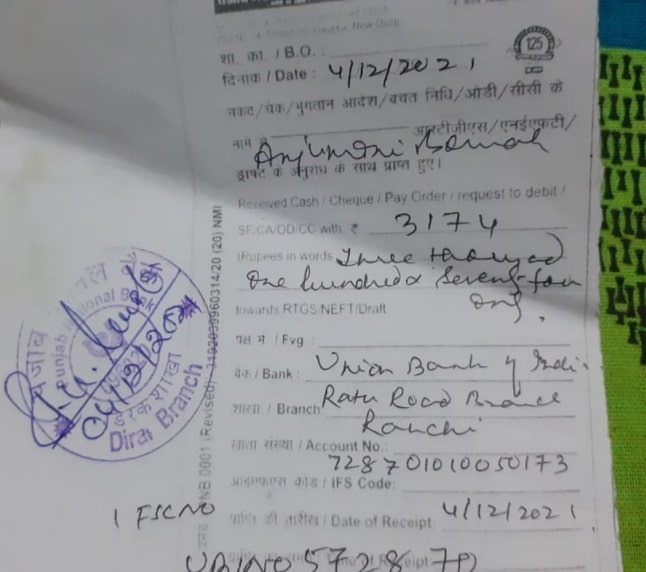 शा. का. / B.O. :
125
दिनांक / Date : 4/12/2021
नकद/चेक/भुगतान आदेश/बचत निधि/ओडी/सीसी के
नामे से आरटीजीएस/एनईएफटी/
Anjumoni
ड्राफ्ट के अनुरोध के साथ प्राप्त हुए।
Received Cash / Cheque / Pay Order / request to debit /
SF/CA/OD/CC with ₹ 3174
(Rupees in words Three thousand
One hundred Seventy-four
only.
towards RTGS/NEFT/Draft
पक्ष में / Fvg :
बैंक / Bank : Union Bank of India
शाखा / Branch Ratu Road Branch
Ranchi
खाता संख्या / Account No.:
728701010050173
आईएफएस कोड / IFS Code:
IFSC NO
प्राप्ति की तारीख / Date of Receipt 4/12/2021
UBIN0572870
of Receipt
PNB 0001 (Revised) (20) NMI
पंजाब
Punjab National Bank
04/12/2021
शाखा
Dirak Branch